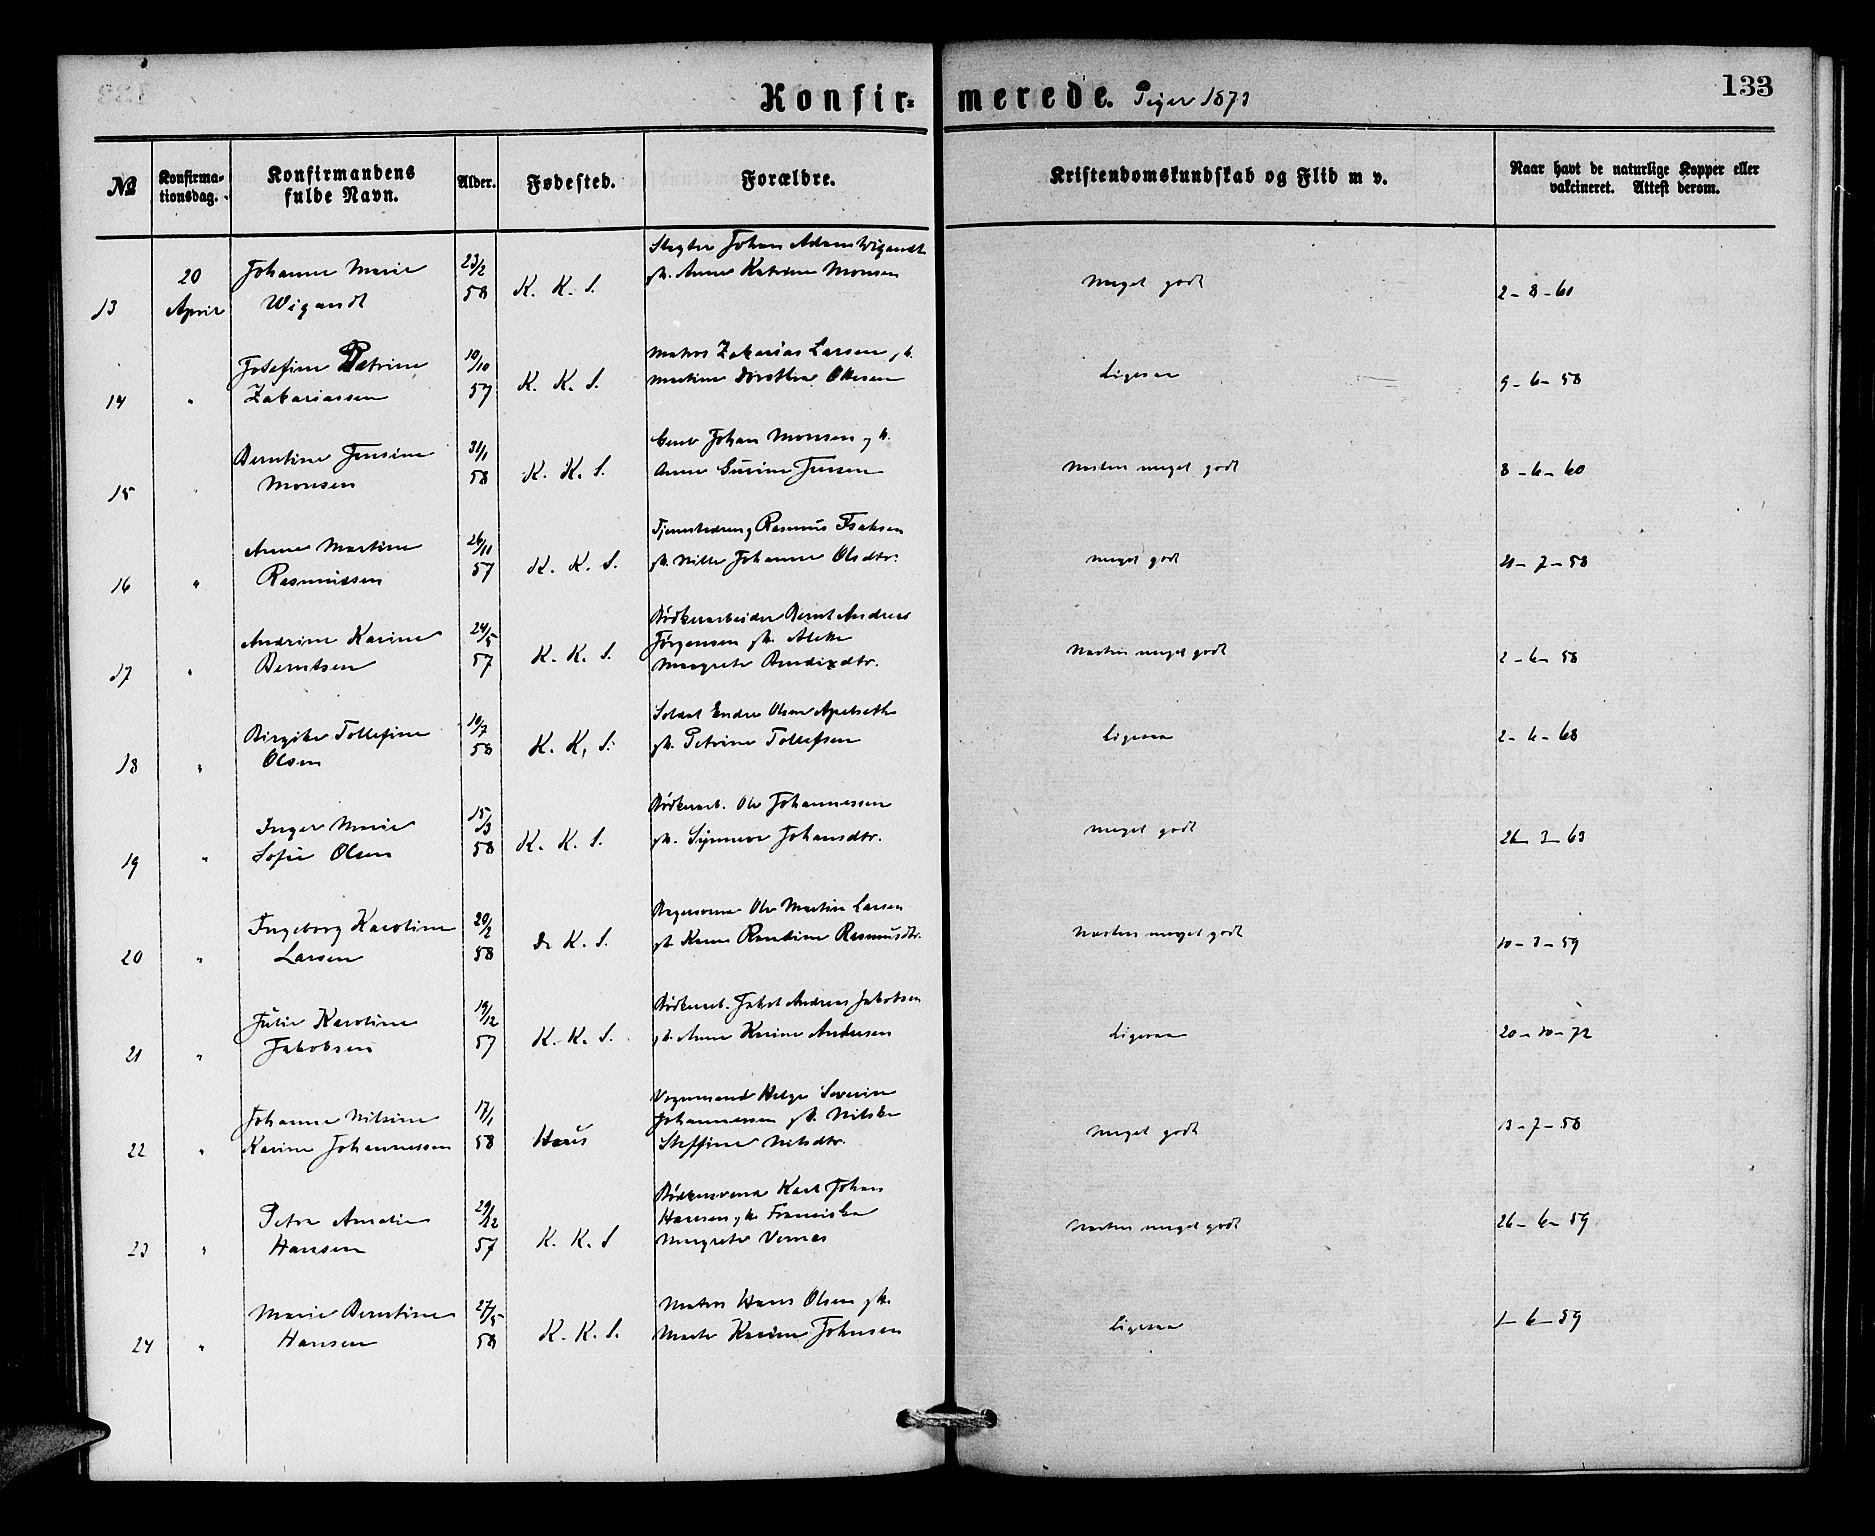 Konfirmerede. Piger 1873
133
№
Konfirma-
tionsdag.
Konfirmandens
fulde Navn.
Alder.
Fødested.
Forældre.
Kristendomskundskab og Flid m v.
Naar havt de naturlige Kopper eller
vakcineret. Attest derom.
13
20
April
Johanne Marie
Wigandt
23/2
58
K. K. S.
Slagter Johan Adam Wigandt
gh. Anne Katrine Monsen
Meget godt
2-8-60
14
"
Josefine Petrine
Zakariassen
10/10
57
K. K. S.
Matros Zakarias Larsen gh.
Martine Dorothea Olsen
Ligesaa
9-6-58
15
"
Berntine Jensine
Monsen
31/1
58
K. K. S.
Johan Monsen gh.
Anne Gurine Jensen
Næsten meget godt
8-6-60
16
"
Anne Martine
Rasmussen
26/11
57
K. K. S.
Tjenestedreng Rasmus Isaksen
gh. Nille Johanne Olsdtr.
Meget godt
21-7-58
17
"
Andrine Karine
Berntsen
24/5
57
K. K. S.
Bødkerarbeider Bernt Andreas
Jørgensen gh. Alette
Margrete Bendixdtr.
Næsten meget godt
2-6-58
18
"
Birgitte Tollefine
Olsen
10/7
58
K. K. S.
Soldat Endre Olsen Apelseth
gh. Petrine Tollefsen
Ligesaa
2-6-68
19
"
Inger Marie
Sofie Olsen
15/3
58
K. K. S.
Bødkerarb. Ole Johannessen
gh. Synneve Johansdtr.
Meget godt
26-3-63
20
"
Ingeborg Karoline
Larsen
20/2
58
Do K. S.
Bagersvend Ole Martin Larsen
gh. Karen Rasmusdtr.
Næsten meget godt
10-3-59
21
"
Julie Karoline
Jakobsen
19/12
57
K. K. S.
Bødkerarb. Jakob Andreas Jakobsen
gh. Anne Karine Andersen
Ligesaa
20-10-72
22
"
Johanne Nilsine
Karine Johannessen
17/1
58
Haus
Vognmand Helge Severin
Johannessen gh. Nilske
Steffine Nilsdtr.
Meget godt
13-7-58
23
"
Petra Amalie
Hansen
29/12
57
K. K. S
Bødkersvend Karl Johan
Hansen gh. Franciska
Margrete Vernes
Næsten meget godt
26-6-59
24
"
Marie Berntine
Hansen
27/5
58
K. K. S.
Matros Hans Olsen gh.
Marte Karine Johnsen
Ligesaa
1-6-59